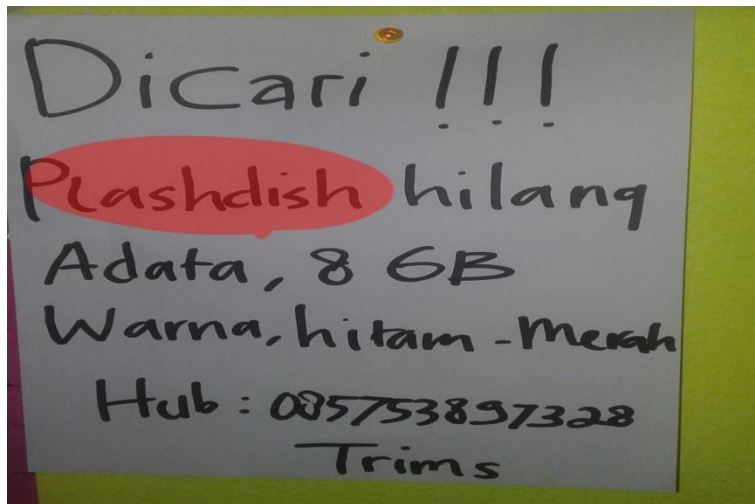 Dicari !!!
Plashdish hilang
Adata, 8 GB
Warna, hitam - Merah
Hub : 085753897328
Trims